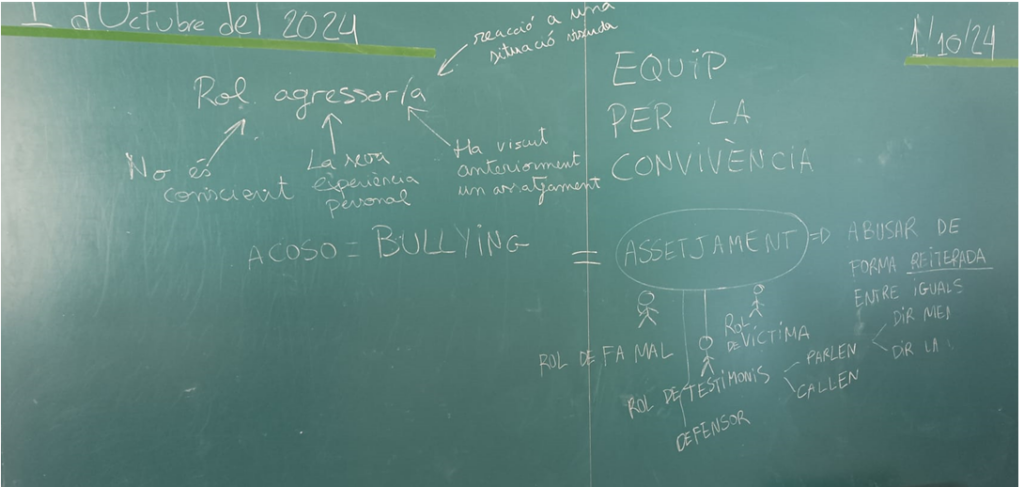 1 d'Octubre del 2024
1/10/24
reacció a una
situació viscuda
Rol agressor/a
No és
conscient
La seva
experiència
personal
Ha viscut
anteriorment
un assatjament
EQUIP
PER LA
CONVIVÈNCIA
ACOSO = BULLYING = ASSETJAMENT => ABUSAR DE
FORMA REITERADA
ENTRE IGUALS
ROL DE FA MAL
ROL
DE VÍCTIMA
ROL DE TESTIMONIS
PARLEN
DIR
DIR LA
CALLEN
DEFENSOR